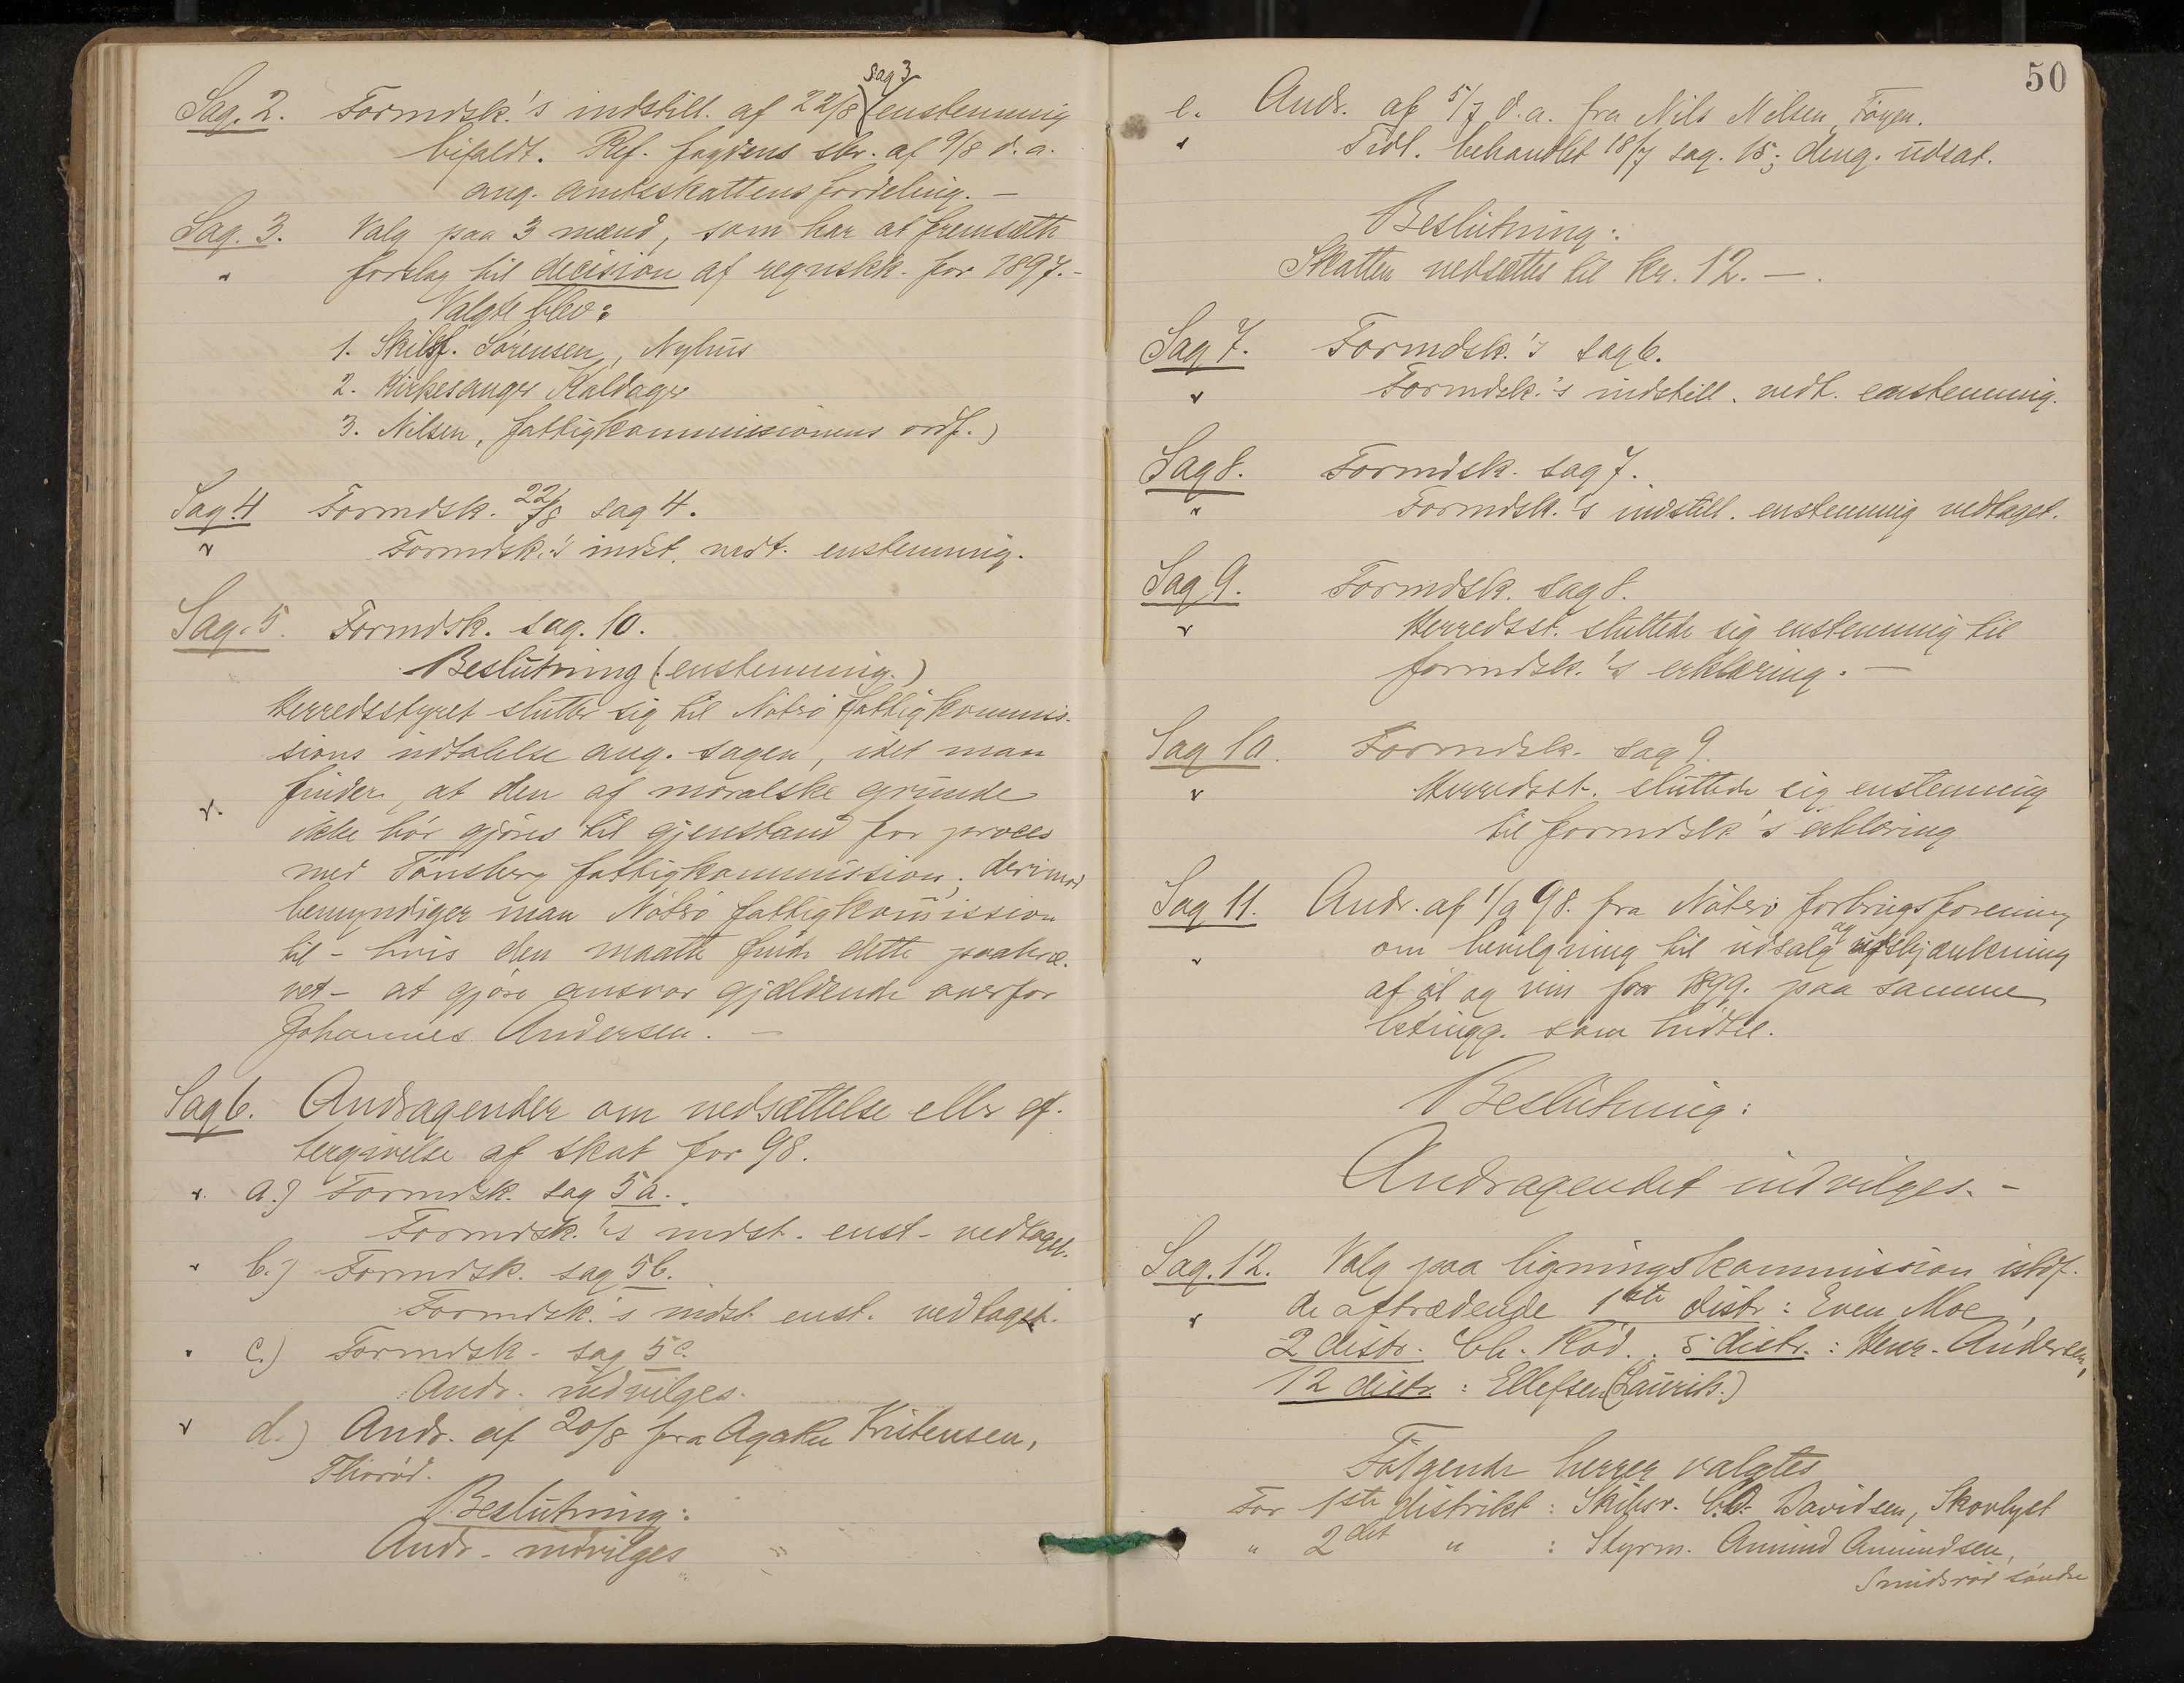 sag 3
Sag. 2. Formdsk.'s indstill. af 22/8 enstemmig
bifaldt. Ref. fogdens skr. af 9/8 d. a.
ang. amtsskattens fordeling. —
Sag. 3. Valg paa 3 mænd, som har at fremsætte
forslag til decision af regnskk. for 1897. -
Valgte blev:
1. Skibsf. Sörensen, Nyhus
2. Kirkesanger Kaldager
3. Nilsen, fattigkommissionens ordf.)
Sag. 4 Formdsk. 22/8 sag 4.
Formdsk.'s indst. vedt. enstemmig.
Sag. 5. Formdsk. sag. 10.
Beslutning (enstemmig.)
Herredsstyret slutter sig til Nöterö fattigkommis-
sions udtalelse ang. sagen, idet man
finder, at den af moralske grunde
ikke bör gjöres til gjenstand for proces
med Tönsberg fattigkommission; derimod
bemyndiger man Nöterö fattigkommission
til - hvis den maatte finde dette paakræ-
vet - at gjöre ansvar gjældende overfor
Johannes Andersen. —
Sag 6. Andragender om nedsættelse eller ef-
tergivelse af skat for 98.
a.) Formdsk. sag 5a.
Formdsk.'s indst. enst. vedtaget.
b.) Formdsk. sag 5b.
Formdsk.'s indst. enst. vedtaget.
c.) Formdsk. sag 5c.
Andr. indvilges.
d.) Andr. af 20/8 fra Agathe Kristensen,
Thorød.
Beslutning:
Andr. indvilges
50
e. Andr. af 5/7 d. a. fra Nils Nilsen, Föyen.
Tidl. behandlet 18/7 sag. 15; deng. udsat.
Beslutning:
Skatten nedsættes til kr. 12. —.
Sag 7. Formdsk.'s sag 6.
Formdsk.'s indstill. vedt. enstemmig.
Sag 8. Formdsk. sag 7.
Formdsk.'s indstill. enstemmig vedtaget.
Sag 9. Formdsk. sag 8.
Herredsst. sluttede sig enstemmig til
formdsk.'s erklæring. —
Sag 10. Formdsk. sag 9.
Herredsst. sluttede sig enstemmig
til formdsk's erklæring
Sag 11. Andr. af 1/9 98. fra Nöterö forbrugsforening
om bevilgning til udsalg og udskjænkning
af öl og vin for 1899. paa samme
betingg. som hidtil.
Beslutning:
Andragendet indvilges. -
Sag. 12. Valg paa ligningskommission istdf.
de aftrædende 1ste distr: Even Moe,
2 distr. Ch. Röd. 5 distr.: Henr. Andersen,
12 distr: Ellefsen (Laurits.)
Fölgende herrer valgtes
For 1ste distrikt: Skibsr. Davidsen, Skovlyst
" 2det " : Styrm. Amund Amundsen,
Smidsröd söndre